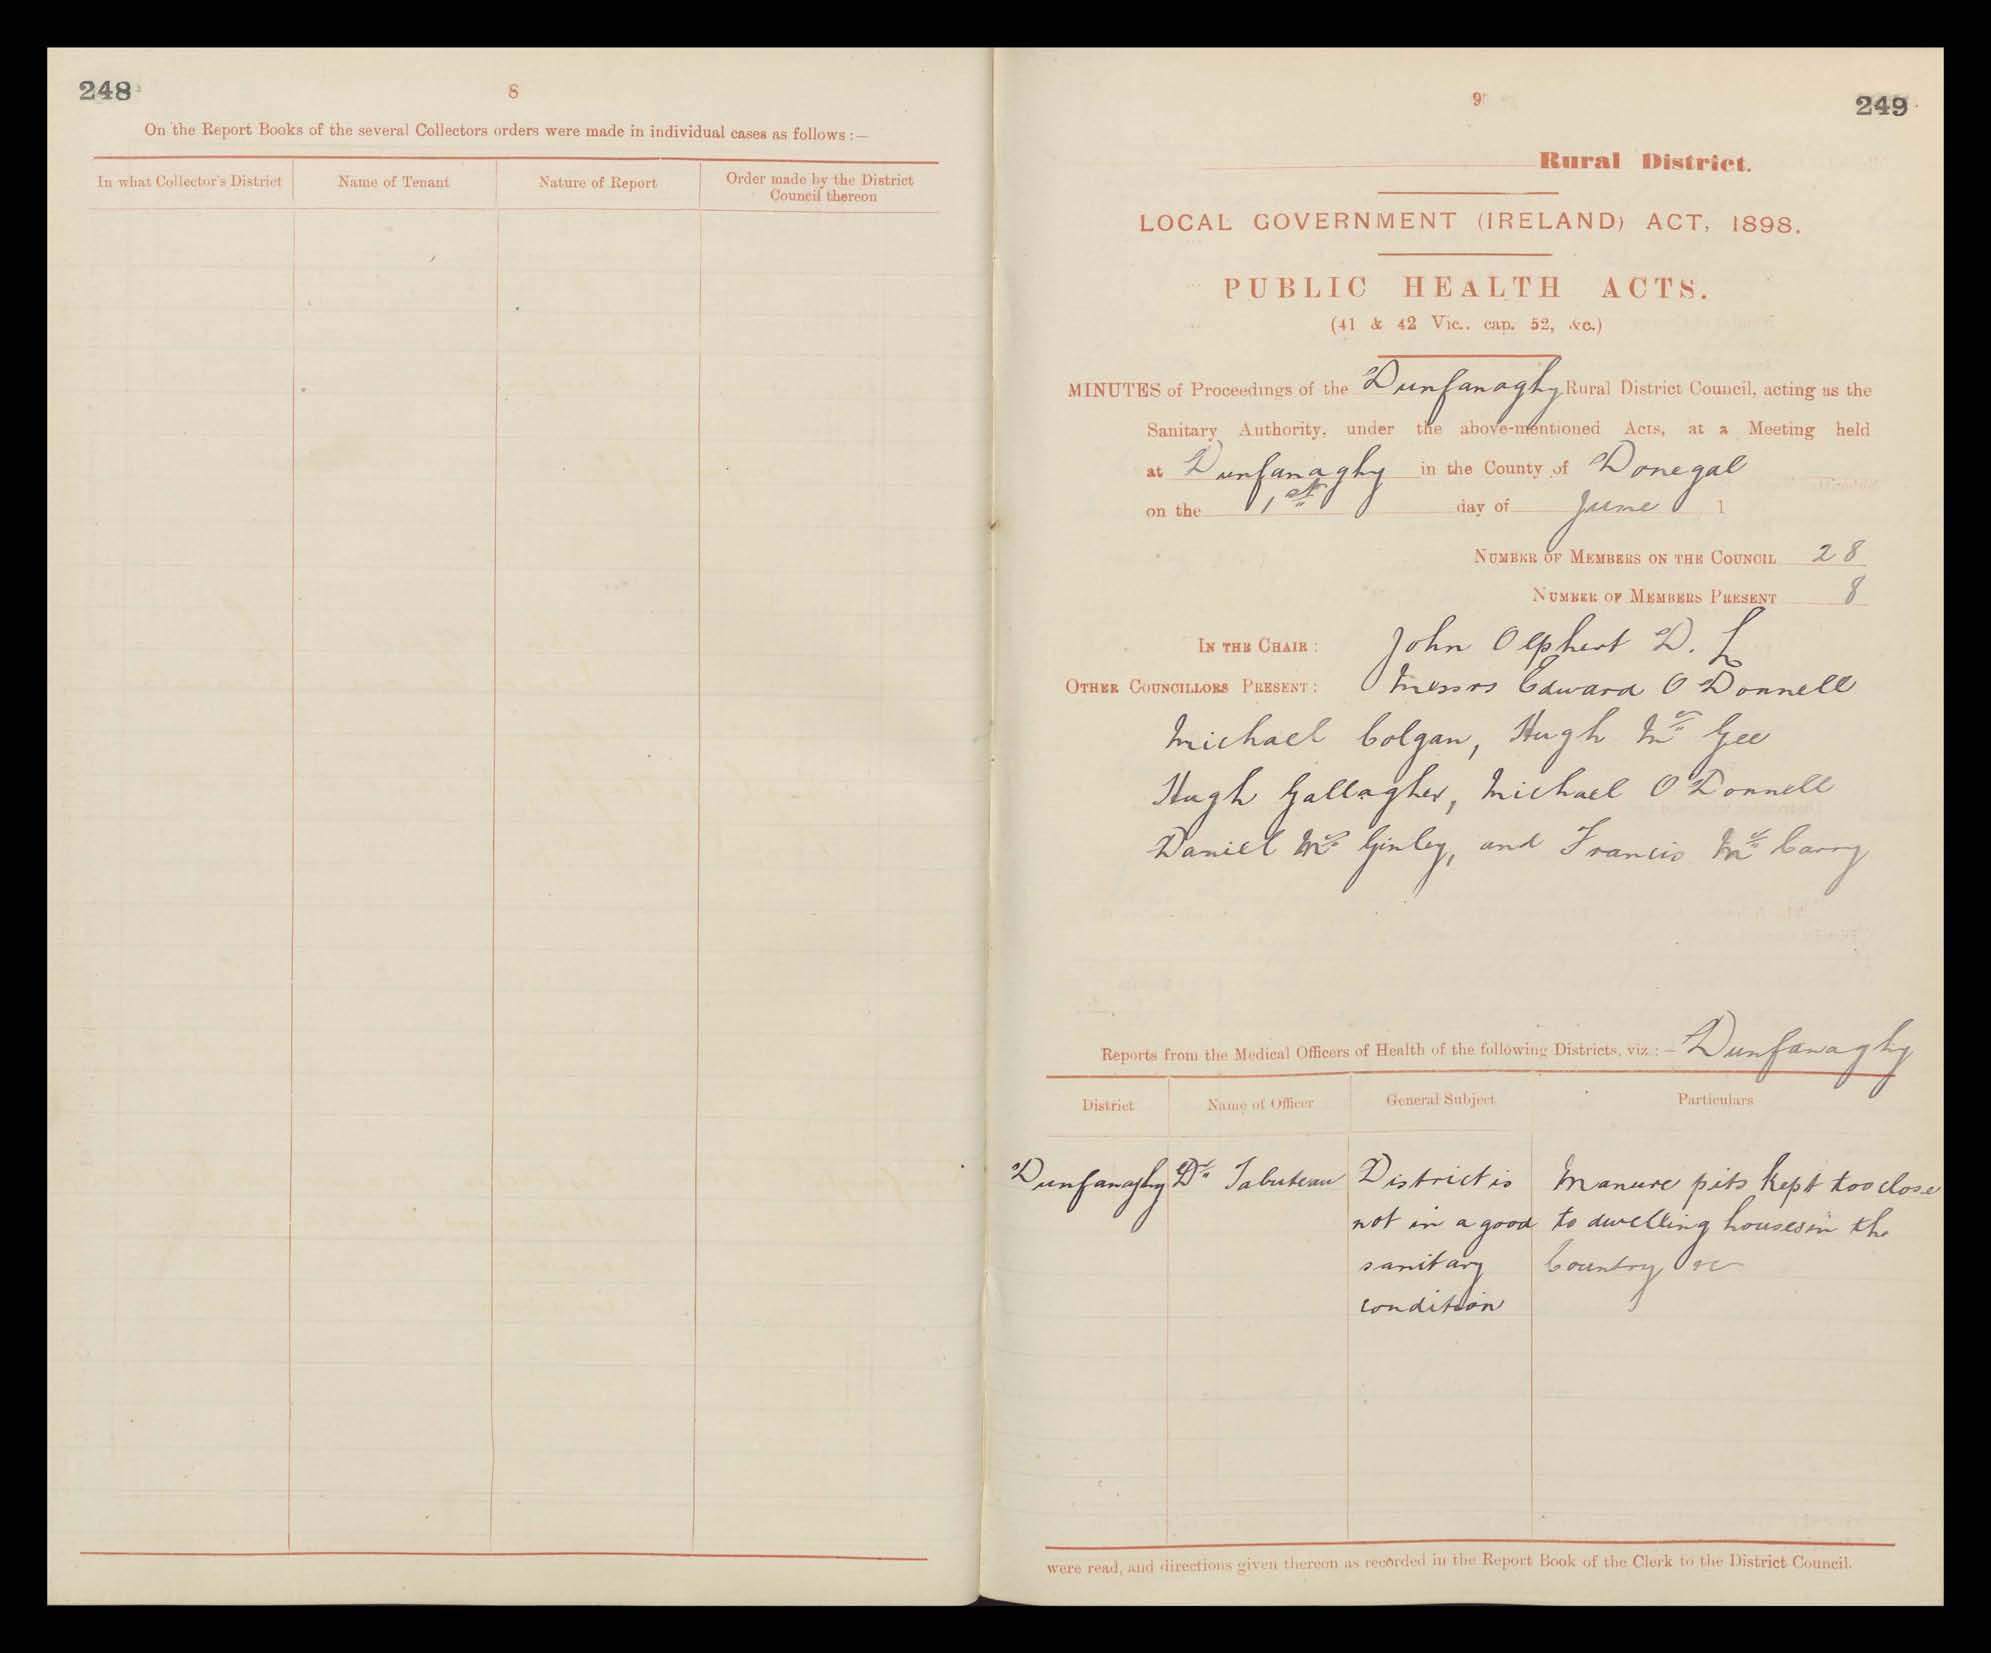 248
8
On the Report Books of the several Collectors orders were made in individual cases as follows :—
In what Collector's District
Name of Tenant
Nature of Report
Order made by the District
Council thereon
9
249
Rural District.
LOCAL GOVERNMENT (IRELAND) ACT, 1898.
PUBLIC HEALTH ACTS.
(41 & 42 Vic.. cap. 52, &c.)
MINUTES of Proceedings of the Dunfanaghy Rural District Council, acting as the
Sanitary Authority, under the above-mentioned Acts, at a Meeting held
at Dunfanaghy in the County of Donegal
on the 1st day of June 1
NUMBER OF MEMBERS ON THE COUNCIL 28
NUMBER OF MEMBERS PRESENT 8
IN THE CHAIR : John Olphert D. L
OTHER COUNCILLORS PRESENT : Messrs Edward O Donnell
Michael Colgan, Hugh Mc Gee
Hugh Gallagher, Michael O'Donnell
Daniel Mc Ginley, and Francis Mc Carry
Reports from the Medical Officers of Health of the following Districts, viz : — Dunfanaghy
District
Name of Officer
General Subject
Particulars
Dunfanaghy
Dr Tabuteau
District is
not in a good
sanitary
condition
Manure pits kept too close
to dwelling houses in the
Country &c
were read, and directions given thereon as recorded in the Report Book of the Clerk to the District Council.